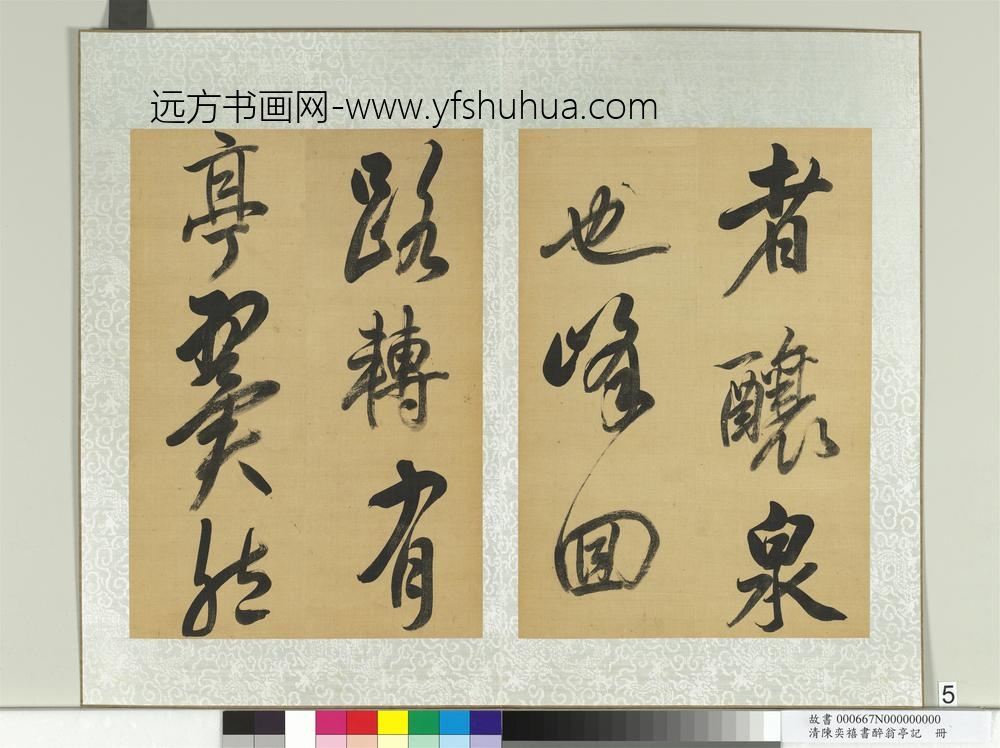 远方书画网-www.yfshuhua.com
者釀泉
也峰回
路轉有
亭翼然
5
故書 000667N000000000
清陳奕禧書醉翁亭記 冊